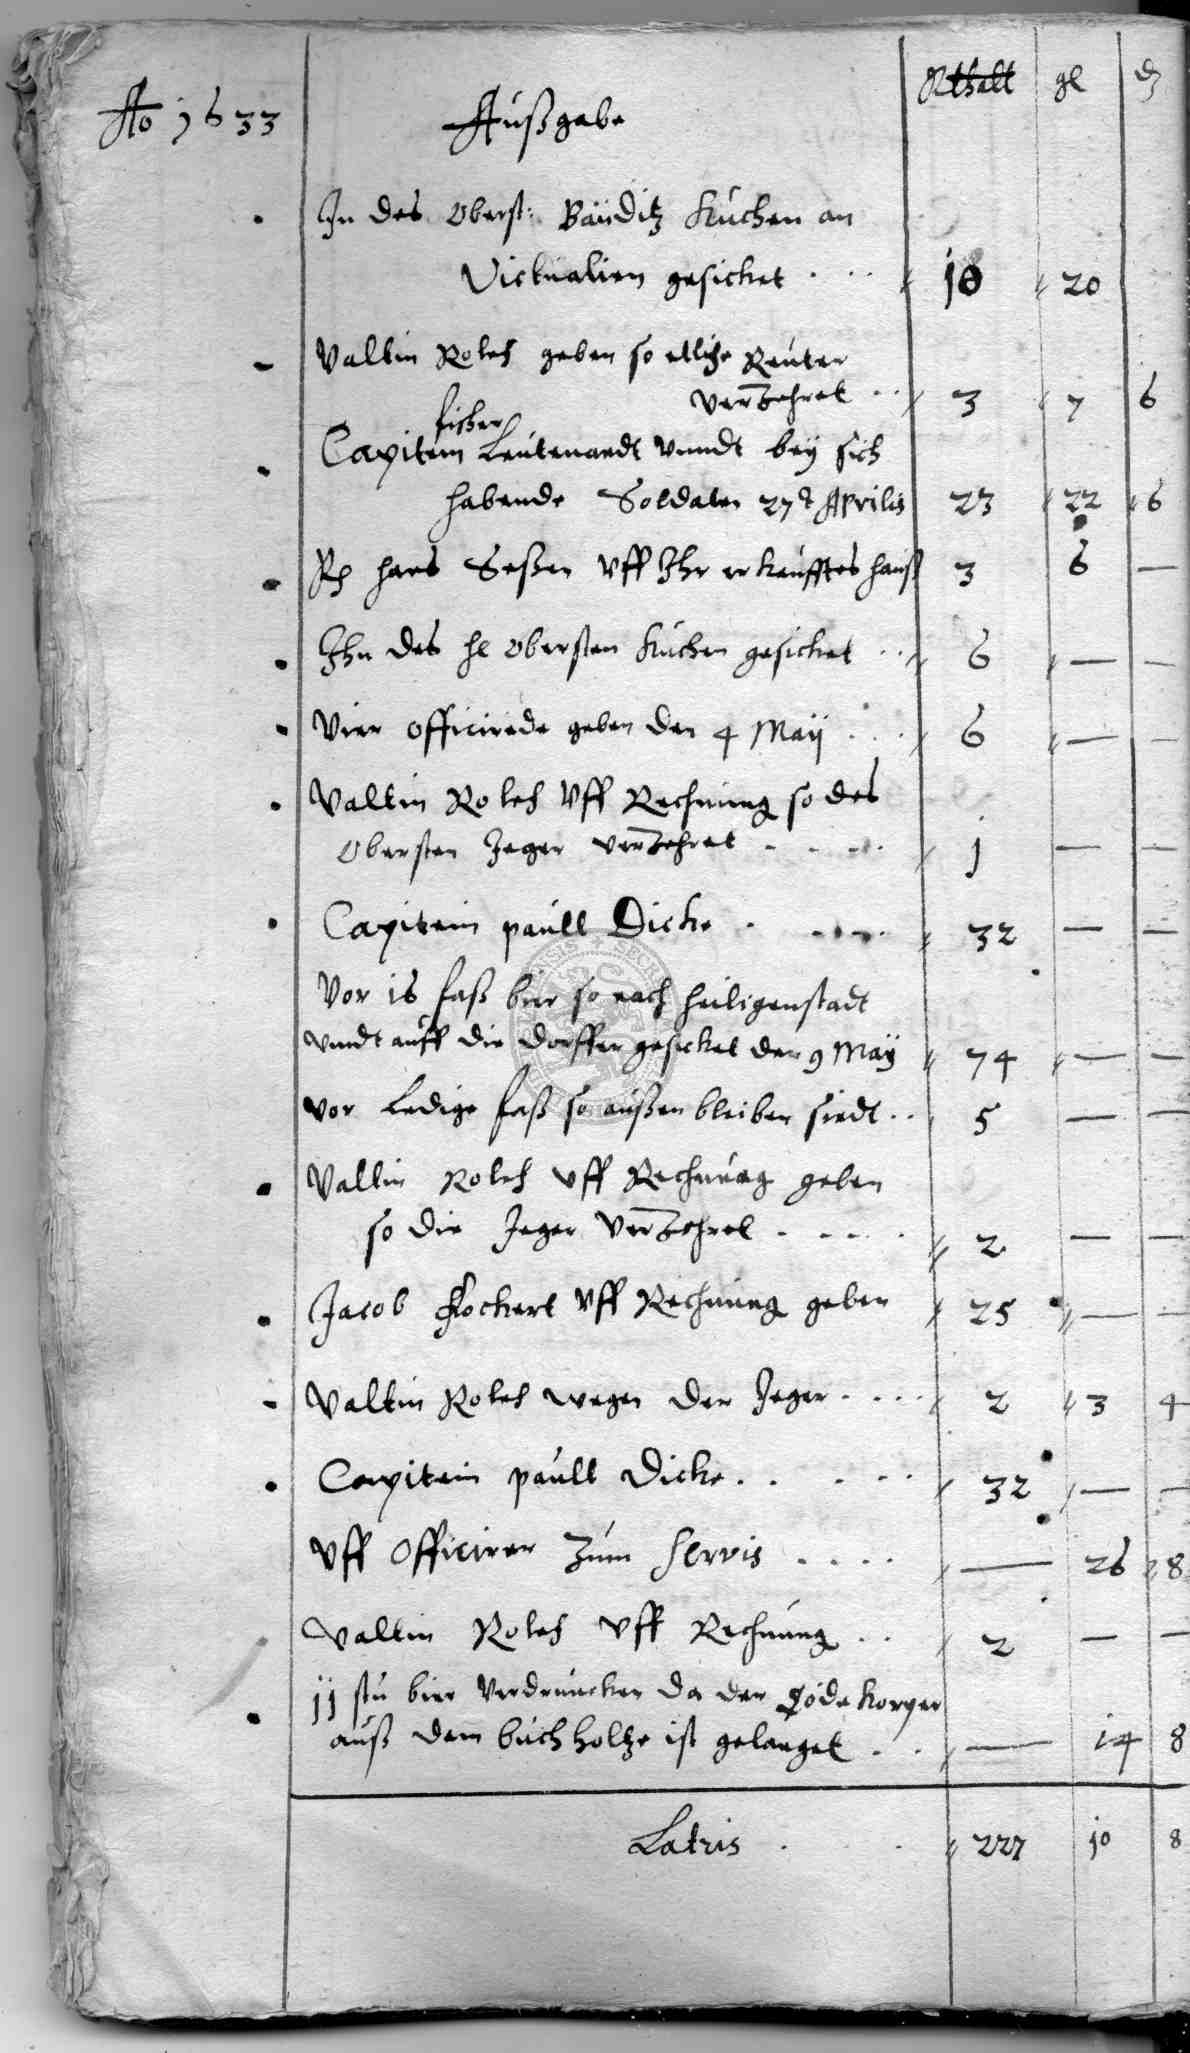 Rthall gl ₰
Ao 1633 Außgabe
In des Oberst: Bauditz Kuchen an
Victualien gesicket 10 20
Valtin Roleff geben so etliche Reuter
verzehret 3 7 6
ficher
Capitein Leutenandt vnndt bey sich
habende Soldaten 27 t Aprilis 23 22 6
hans Seßen vff Ihr erkaufftes hauß 3 6 —
Ihn des hl Obersten Kuchen gesicket 6 — —
Vier officirede geben den 4 Maij 6 — —
Valtin Roleff Vff Rechnung so des
Obersten Jeger verzehret 1 — —
Capitein paull Dicke 32 — —
Vor 16 faß bier so nach heiligenstadt
vnndt auff die dorffer gesicket den 9 Maij 74 — —
vor Ledige faß so außen bleiben sindt 5 — —
Valtin Roleff vff Rechnung geben
so die Jeger Verzehret 2 — —
Jacob Fockert Vff Rechnung geben 25 — —
Valtin Roleff wegen der Jeger 2 3 4
Capitein paull Dicke 32 — —
Vff Officirer zum Servis — 26 8
Valtin Roleff Vff Rechnung 2 — —
11 stu bier Verdruncken da der
auß dem buchholtze ist gelanget — 14 8
Latris 227 10 8